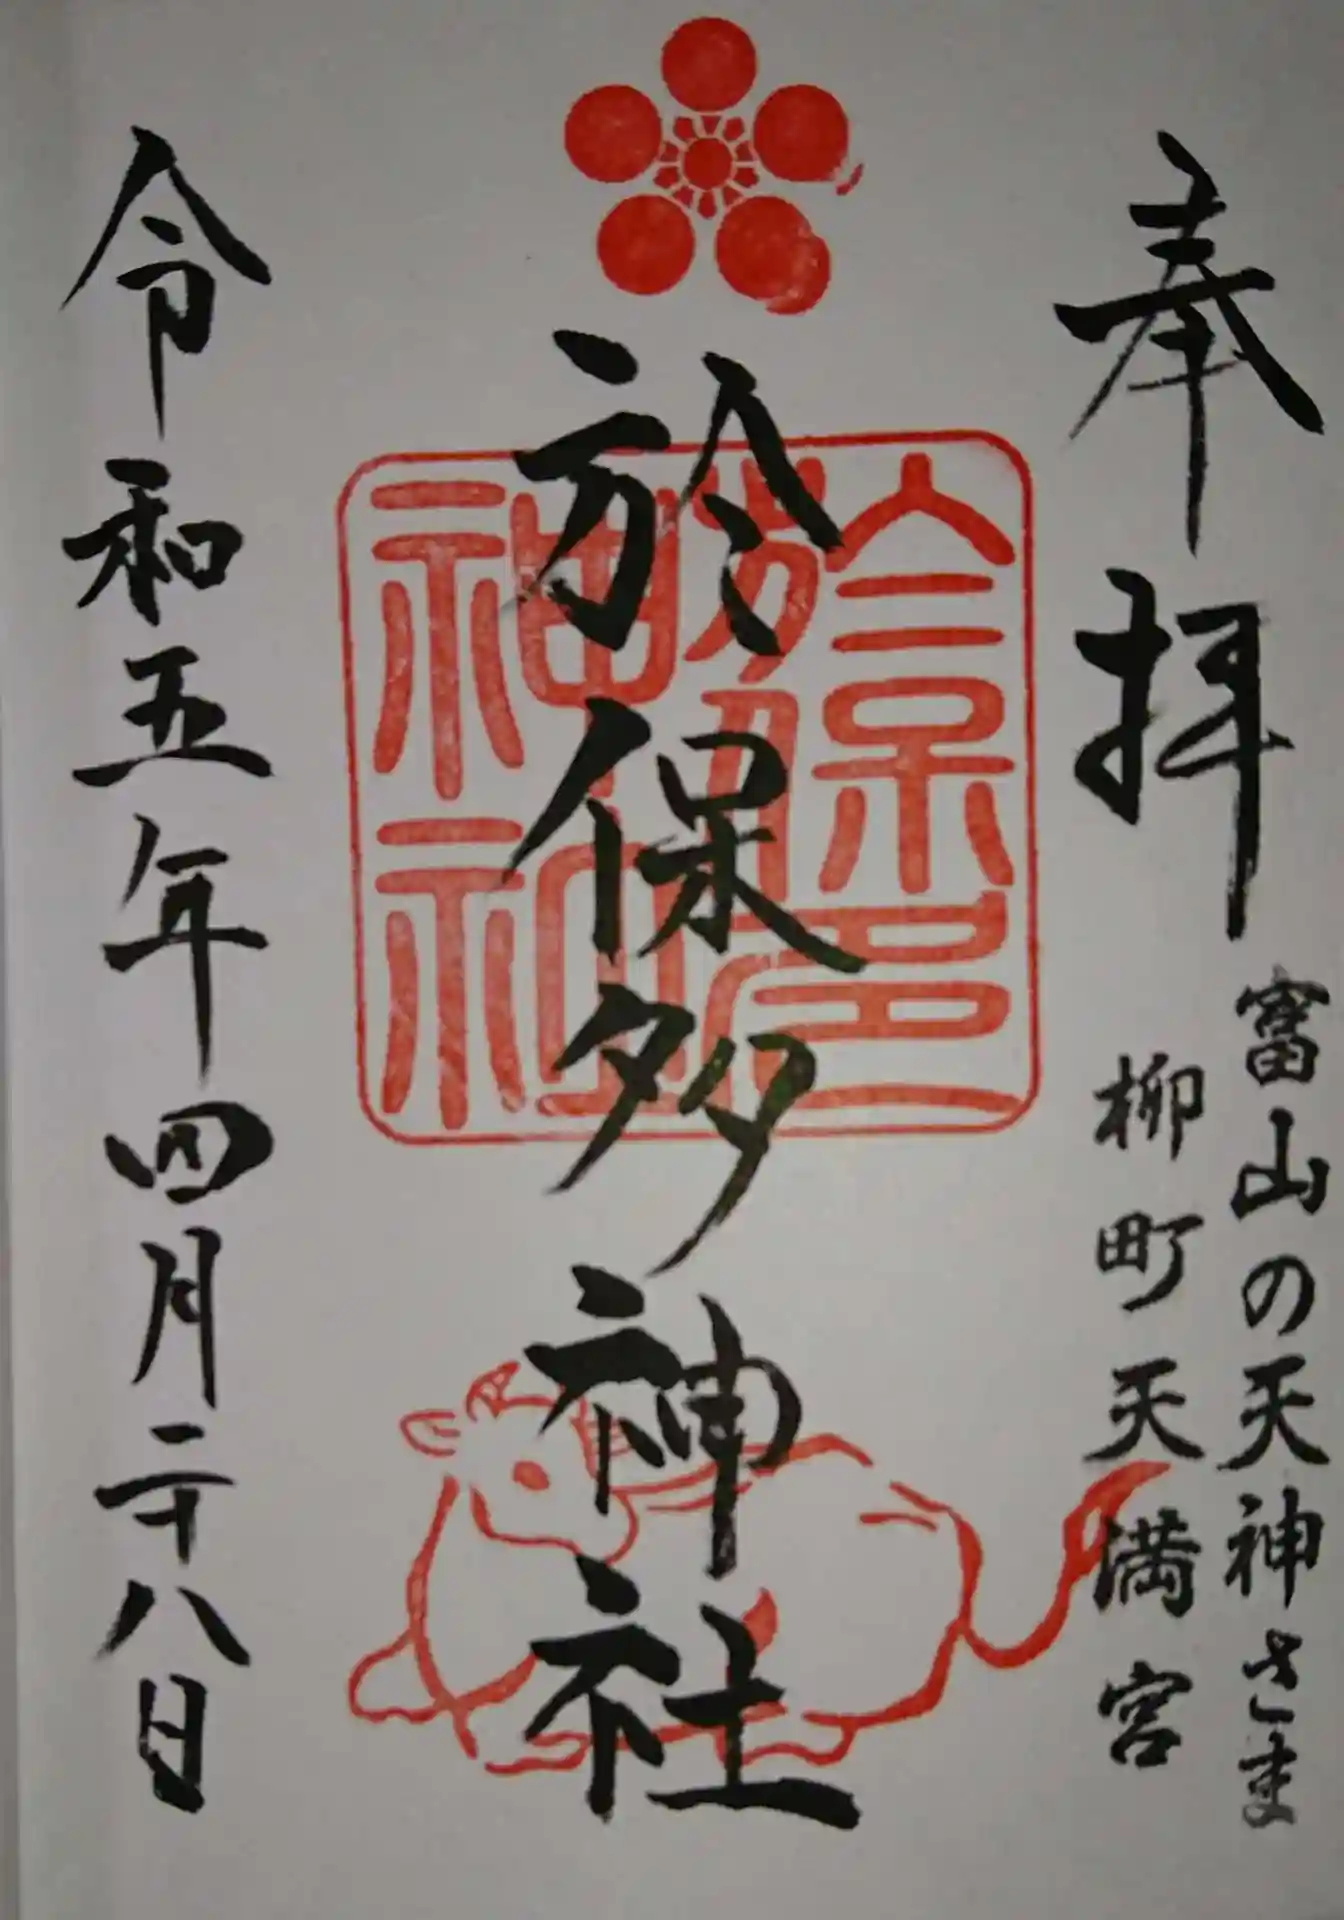 奉拝
富山の天神さま
柳町天満宮
於保多神社
於保多神社
令和五年四月二十八日